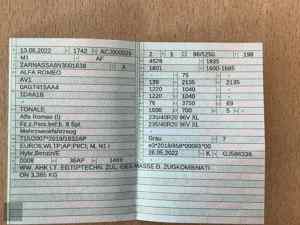 13.06.2022 1742 ACJ000025
M1 AF
ZARNASSA8N3001638 A
ALFA ROMEO
AV1
TONALE
Alfa Romeo (I)
Fz.z.Pers.bef.b. 8 Spl.
Mehrzweckfahrzeug
715/2007*2018/1832AP
EURO6;WLTP;AP;PI/CI; M, N1 I
Hybr.Benzin/E
0008 36AP 1469
WW. AHK LT. EG-TYPTECHN. ZUL. GES.MASSE D. ZUGKOMBINATI
ON 3.385 KG
2 1 96/5250 199
4528 1835
1601 1600-1695
75
139 2135 2135
1220 1040 -
1220 1040 -
76 3750 69
1500 700 5
235/40R20 96V XL
235/40R20 96V XL
ROT 3
e3*2018/858*00093*00
26.05.2022 K